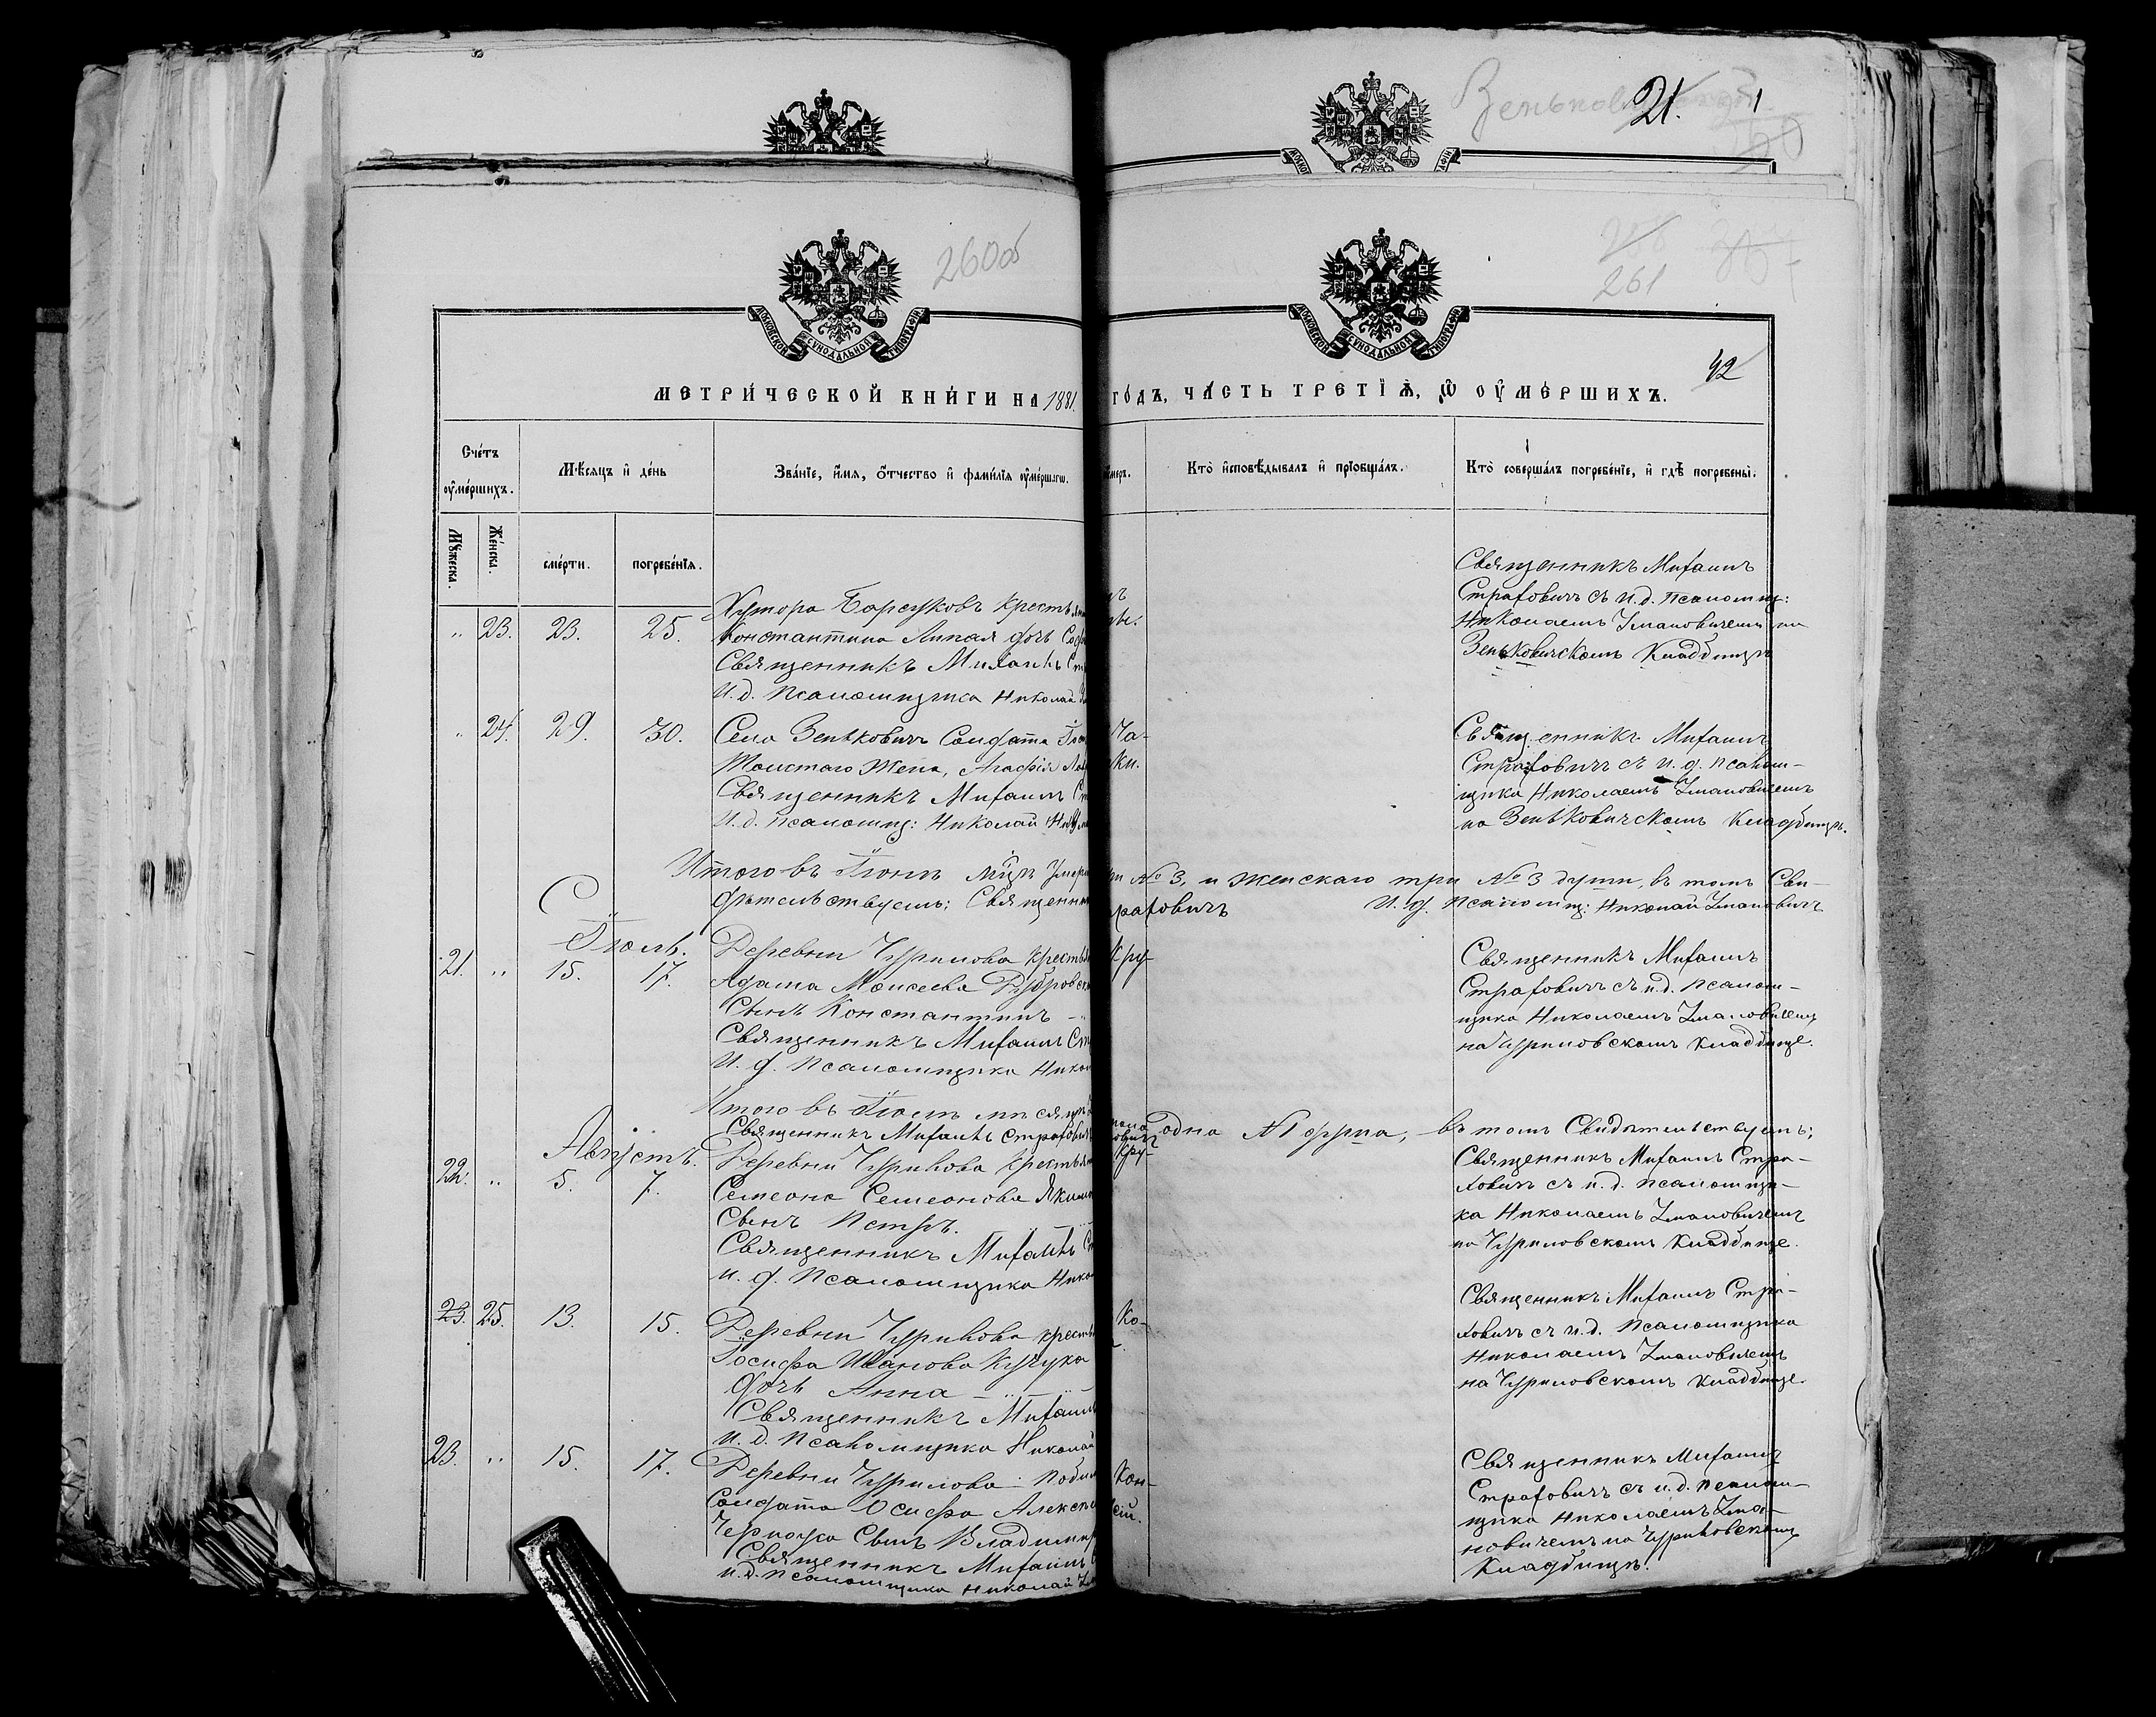 21.
260об
261
42
МОСКОВСКОЙ СУНОДАЛЬНОЙ ТИПОГРАФІИ
МОСКОВСКОЙ СУНОДАЛЬНОЙ ТИПОГРАФІИ
МЕТРИ́ЧЕСКОЙ КНИ́ГИ НА 1881 ГО́ДЪ, ЧА́СТЬ ТРЕТІ́Ѧ, Ѡ ОУМЕ́РШИХЪ.
Сче́тъ оумéршихъ.
Мѣ́сяцъ и де́нь
Зва́ніе, и́мя, о́тчество и фами́лія оумéршагѡ.
Кто̀ исповѣ́дывалъ и пріобща́лъ.
Кто̀ соверша́лъ погребе́ніе, и гдѣ̀ погребены̀.
Мꙋ́жеска.
Же́нска.
сме́рти.
погребе́нія.
" 23. 23. 25.
Хутора Барсуковъ Крестьян
Константина дочь
Священникъ Михаилъ
И. д. Псаломщика Николай
Священникъ Михаилъ
Страховичъ съ и. д. псаломщ:
Николаемъ Умановичемъ на
Зеньковичскомъ Кладбищѣ
" 24. 29. 30.
Села Зеньковичъ Солдата
Толстаго Жена, Агафія
Священникъ Михаилъ
И. д. псаломщ: Николай
Священникъ Михаилъ
Страховичъ съ и. д. псалом-
щика Николаемъ Умановичемъ
на Зеньковичскомъ Кладбищѣ.
Итого въ Іюнѣ мцѣ № 3, и женскаго три № 3 души, въ томъ Сви-
дѣтельствуемъ: Священни раховичъ И. д. Псаломщ: Николай Умановичъ
Іюль.
21. " 15. 17.
Деревни Чурилова Крестья
Адама Моисеева Дубровск
Сынъ Константинъ -
Священникъ Михаилъ
И. д. Псаломщика Никол
Священникъ Михаилъ
Страховичъ съ и. д. псалом-
щика Николаемъ Умановичемъ
на Чуриловскомъ Кладбище.
Итого въ Іюлѣ мѣсяцѣ одна №1 душа, въ томъ Свидѣтельствуемъ:
Священникъ Михаилъ Страхович
Августъ.
22. " 5. 7.
Деревни Чурилова Крестьян
Семеона Семеонова Яким
Сынъ Петръ.
Священникъ Михаилъ
И. д. Псаломщика Нико
Священникъ Михаилъ Стра-
ховичъ съ и. д. псаломщи-
ка Николаемъ Умановичемъ
на Чуриловскомъ Кладбище.
23. 25. 13. 15.
Деревни Чурилова Кресть
Іосифа Иванова Кучука
дочь Анна -
Священникъ Михаилъ
И. д. Псаломщика Николай
Священникъ Михаилъ Стра-
ховичъ съ и. д. Псаломщика
Николаемъ Умановичемъ
на Чуриловскомъ Кладбище.
23. " 15. 17.
Деревни Чурилова
Солдата Осифа Алексѣе
Черноука Сынъ Владимир
Священникъ Михаилъ
И. д. Псаломщика Николай
Священникъ Михаилъ
Страховичъ съ и. д. псалом-
щика Николаемъ Ума-
новичемъ на Чуриловскомъ
Кладбищѣ.